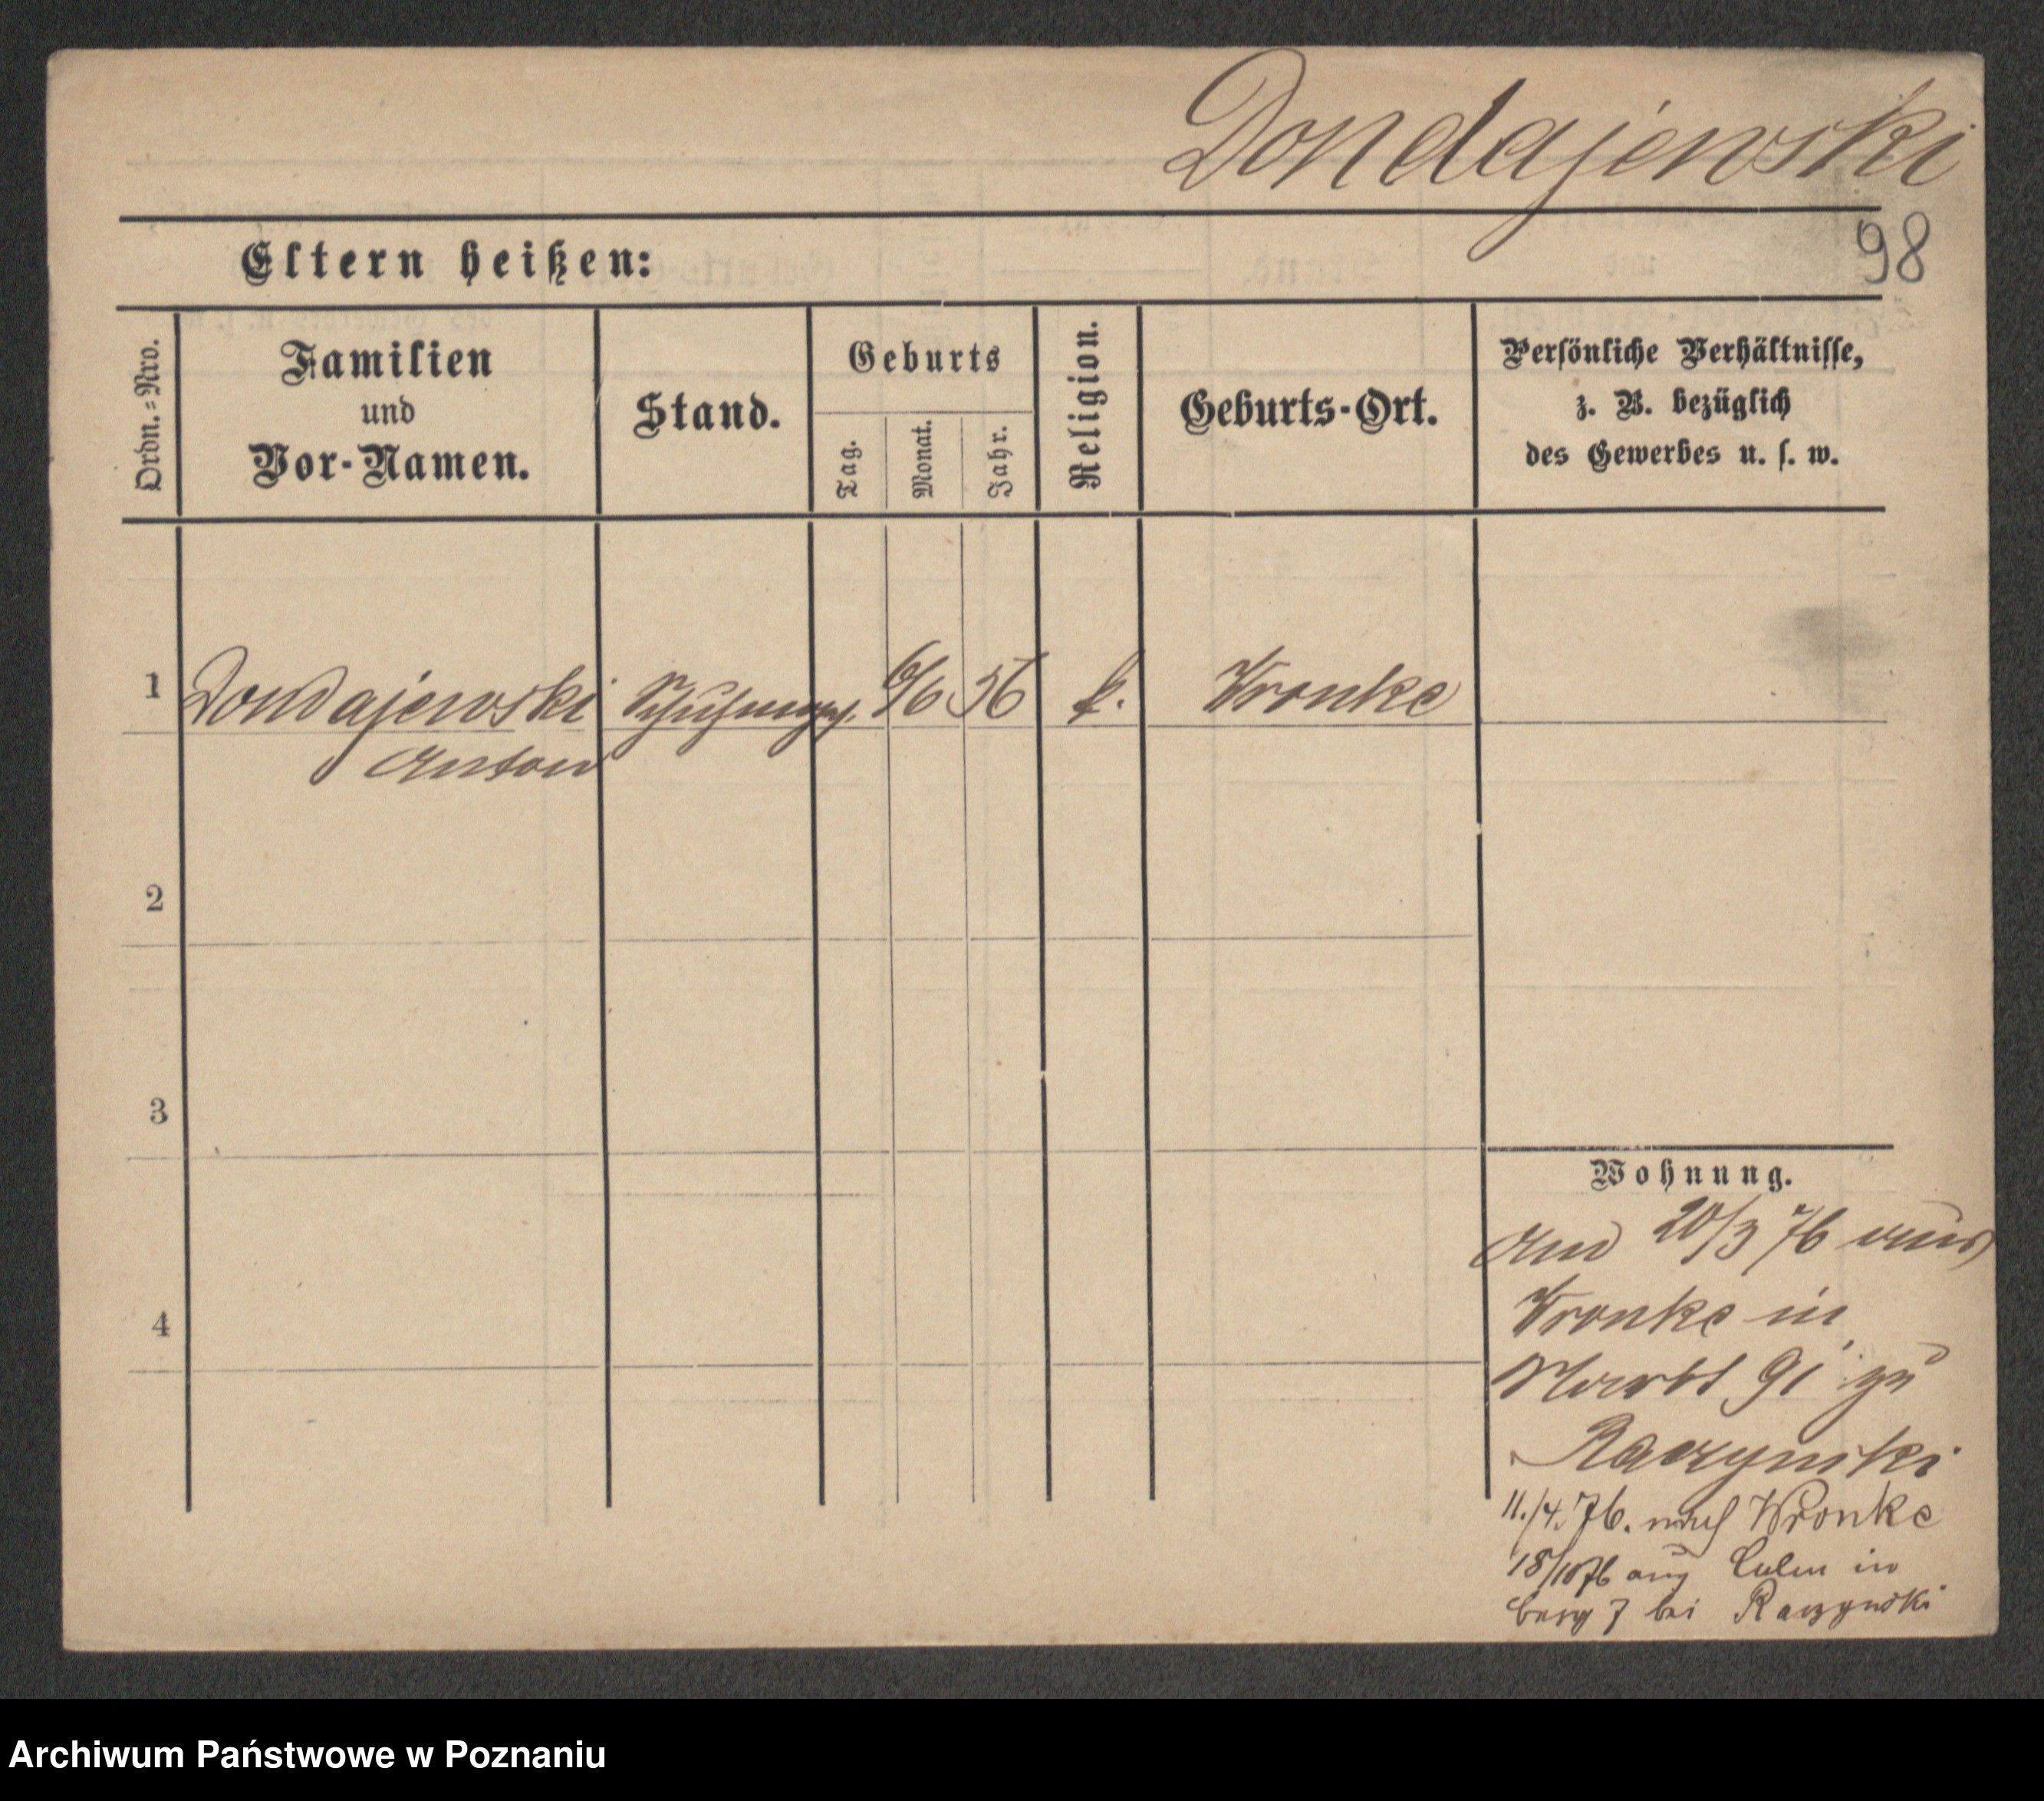 Dondajewski
98
Eltern heißen:
Ordn.=Nro.
Familien
und
Vor-Namen.
Stand.
Geburts
Tag.
Monat.
Jahr.
Religion.
Geburts-Ort.
Persönliche Verhältnisse,
z. B. bezüglich
des Gewerbes u. s. w.
1 Dondajewski 6/6 56 k. Wronke
Anton
2
3
4
Wohnung.
20/3 76 aus
Wronke in
Markt 91 zu
Raczynski
11./4. 76. nach Wronke
18/10 76 aus Culm in
berg 7 bei Raczynski
Archiwum Państwowe w Poznaniu